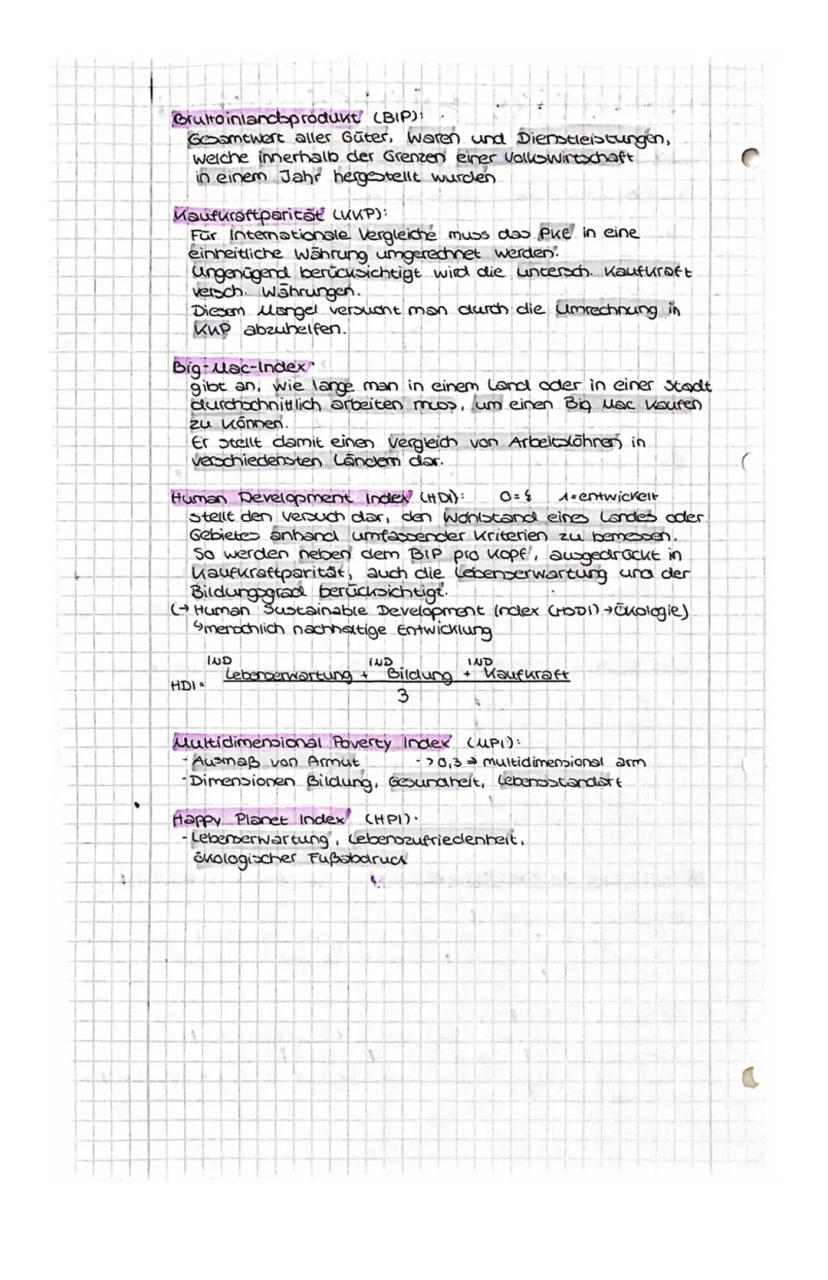 Bruttoinlandsprodukt (BIP):
Gesamtwert aller Güter, Waren und Dienstleistungen,
welche innerhalb der Grenzen einer Volkswirtschaft
in einem Jahr hergestellt wurden
Kaufkraftparität (KKP):
Für Internationale Vergleiche muss das PKE in eine
einheitliche Währung umgerechnet werden.
Ungenügend berücksichtigt wird die untersch. Kaufkraft
versch. Währungen.
Diesem Mangel versucht man durch die Umrechnung in
KKP abzuhelfen.
Big-Mac-Index
gibt an, wie lange man in einem Land oder in einer Stadt
durchschnittlich arbeiten muss, um einen Big Mac kaufen
zu können.
Er stellt damit einen Vergleich von Arbeitslöhnen in
verschiedensten Ländern dar.
Human Development Index (HDI): 0= 1=entwickelt
stellt den Versuch dar, den Wohlstand eines Landes oder
Gebietes anhand umfassender Kriterien zu bemessen.
So werden neben dem BIP pro Kopf, ausgedrückt in
Kaufkraftparität, auch die Lebenserwartung und der
Bildungsgrad berücksichtigt.
(→ Human Sustainable Development Index (HSDI) → Ökologie)
↳menschlich nachhaltige Entwicklung
IND IND IND
Lebenserwartung + Bildung + Kaufkraft
HDI =
3
Multidimensional Poverty Index (MPI):
- Ausmaß von Armut - > 0,3 ⇒ multidimensional arm
- Dimensionen Bildung, Gesundheit, Lebensstandart
Happy Planet Index (HPI).
- Lebenserwartung, Lebenszufriedenheit,
ökologischer Fußabdruck